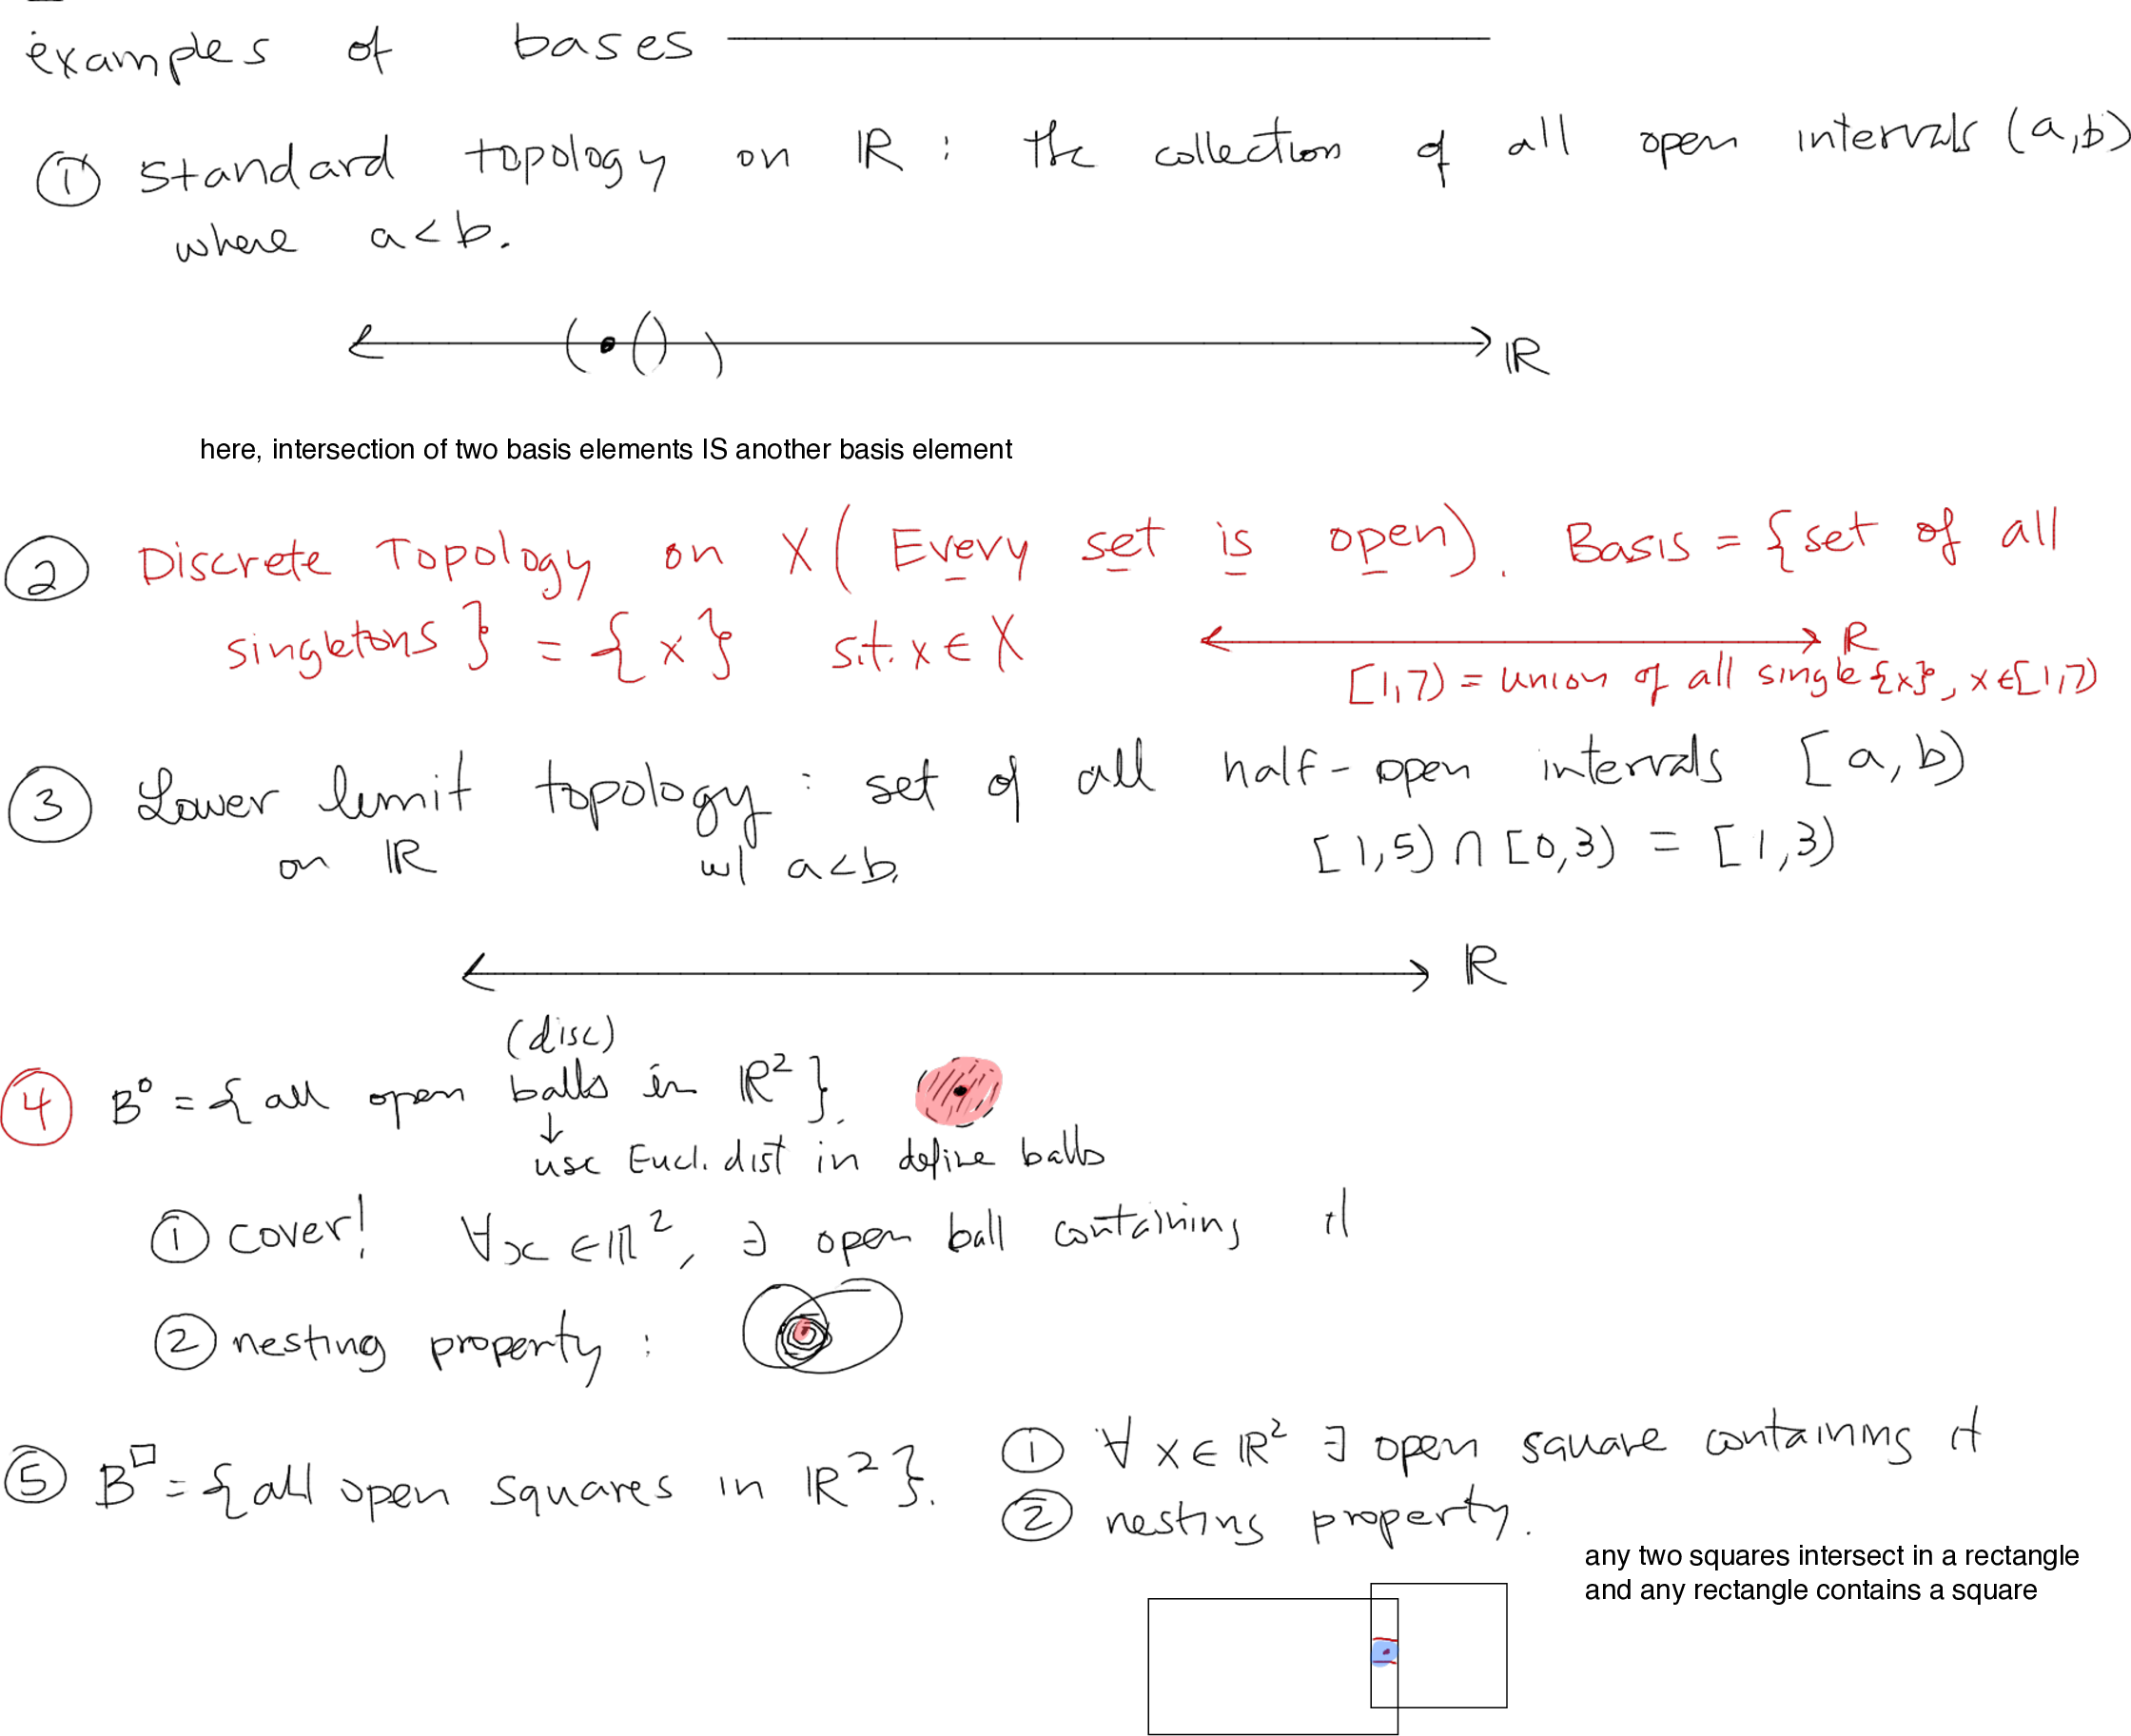 examples of bases
① standard topology on ℝ : the collection of all open intervals (a,b)
where a<b.
( • ( ) ) ℝ
here, intersection of two basis elements IS another basis element
② Discrete Topology on X ( Every set is open). Basis = { set of all
singletons } = { x } s.t. x ∈ X
ℝ
[1,7) = union of all single {x}, x ∈ [1,7)
③ Lower limit topology : set of all half-open intervals [a,b)
on ℝ w/ a<b. [1,5) ∩ [0,3) = [1,3)
ℝ
(disc)
④ B° = { all open balls in ℝ² }.
↓
use Eucl. dist in define balls
① cover! ∀x ∈ ℝ², ∃ open ball containing it
② nesting property :
⑤ B□ = { all open squares in ℝ² }.
① ∀ x ∈ ℝ² ∃ open square containing it
② nesting property.
any two squares intersect in a rectangle
and any rectangle contains a square